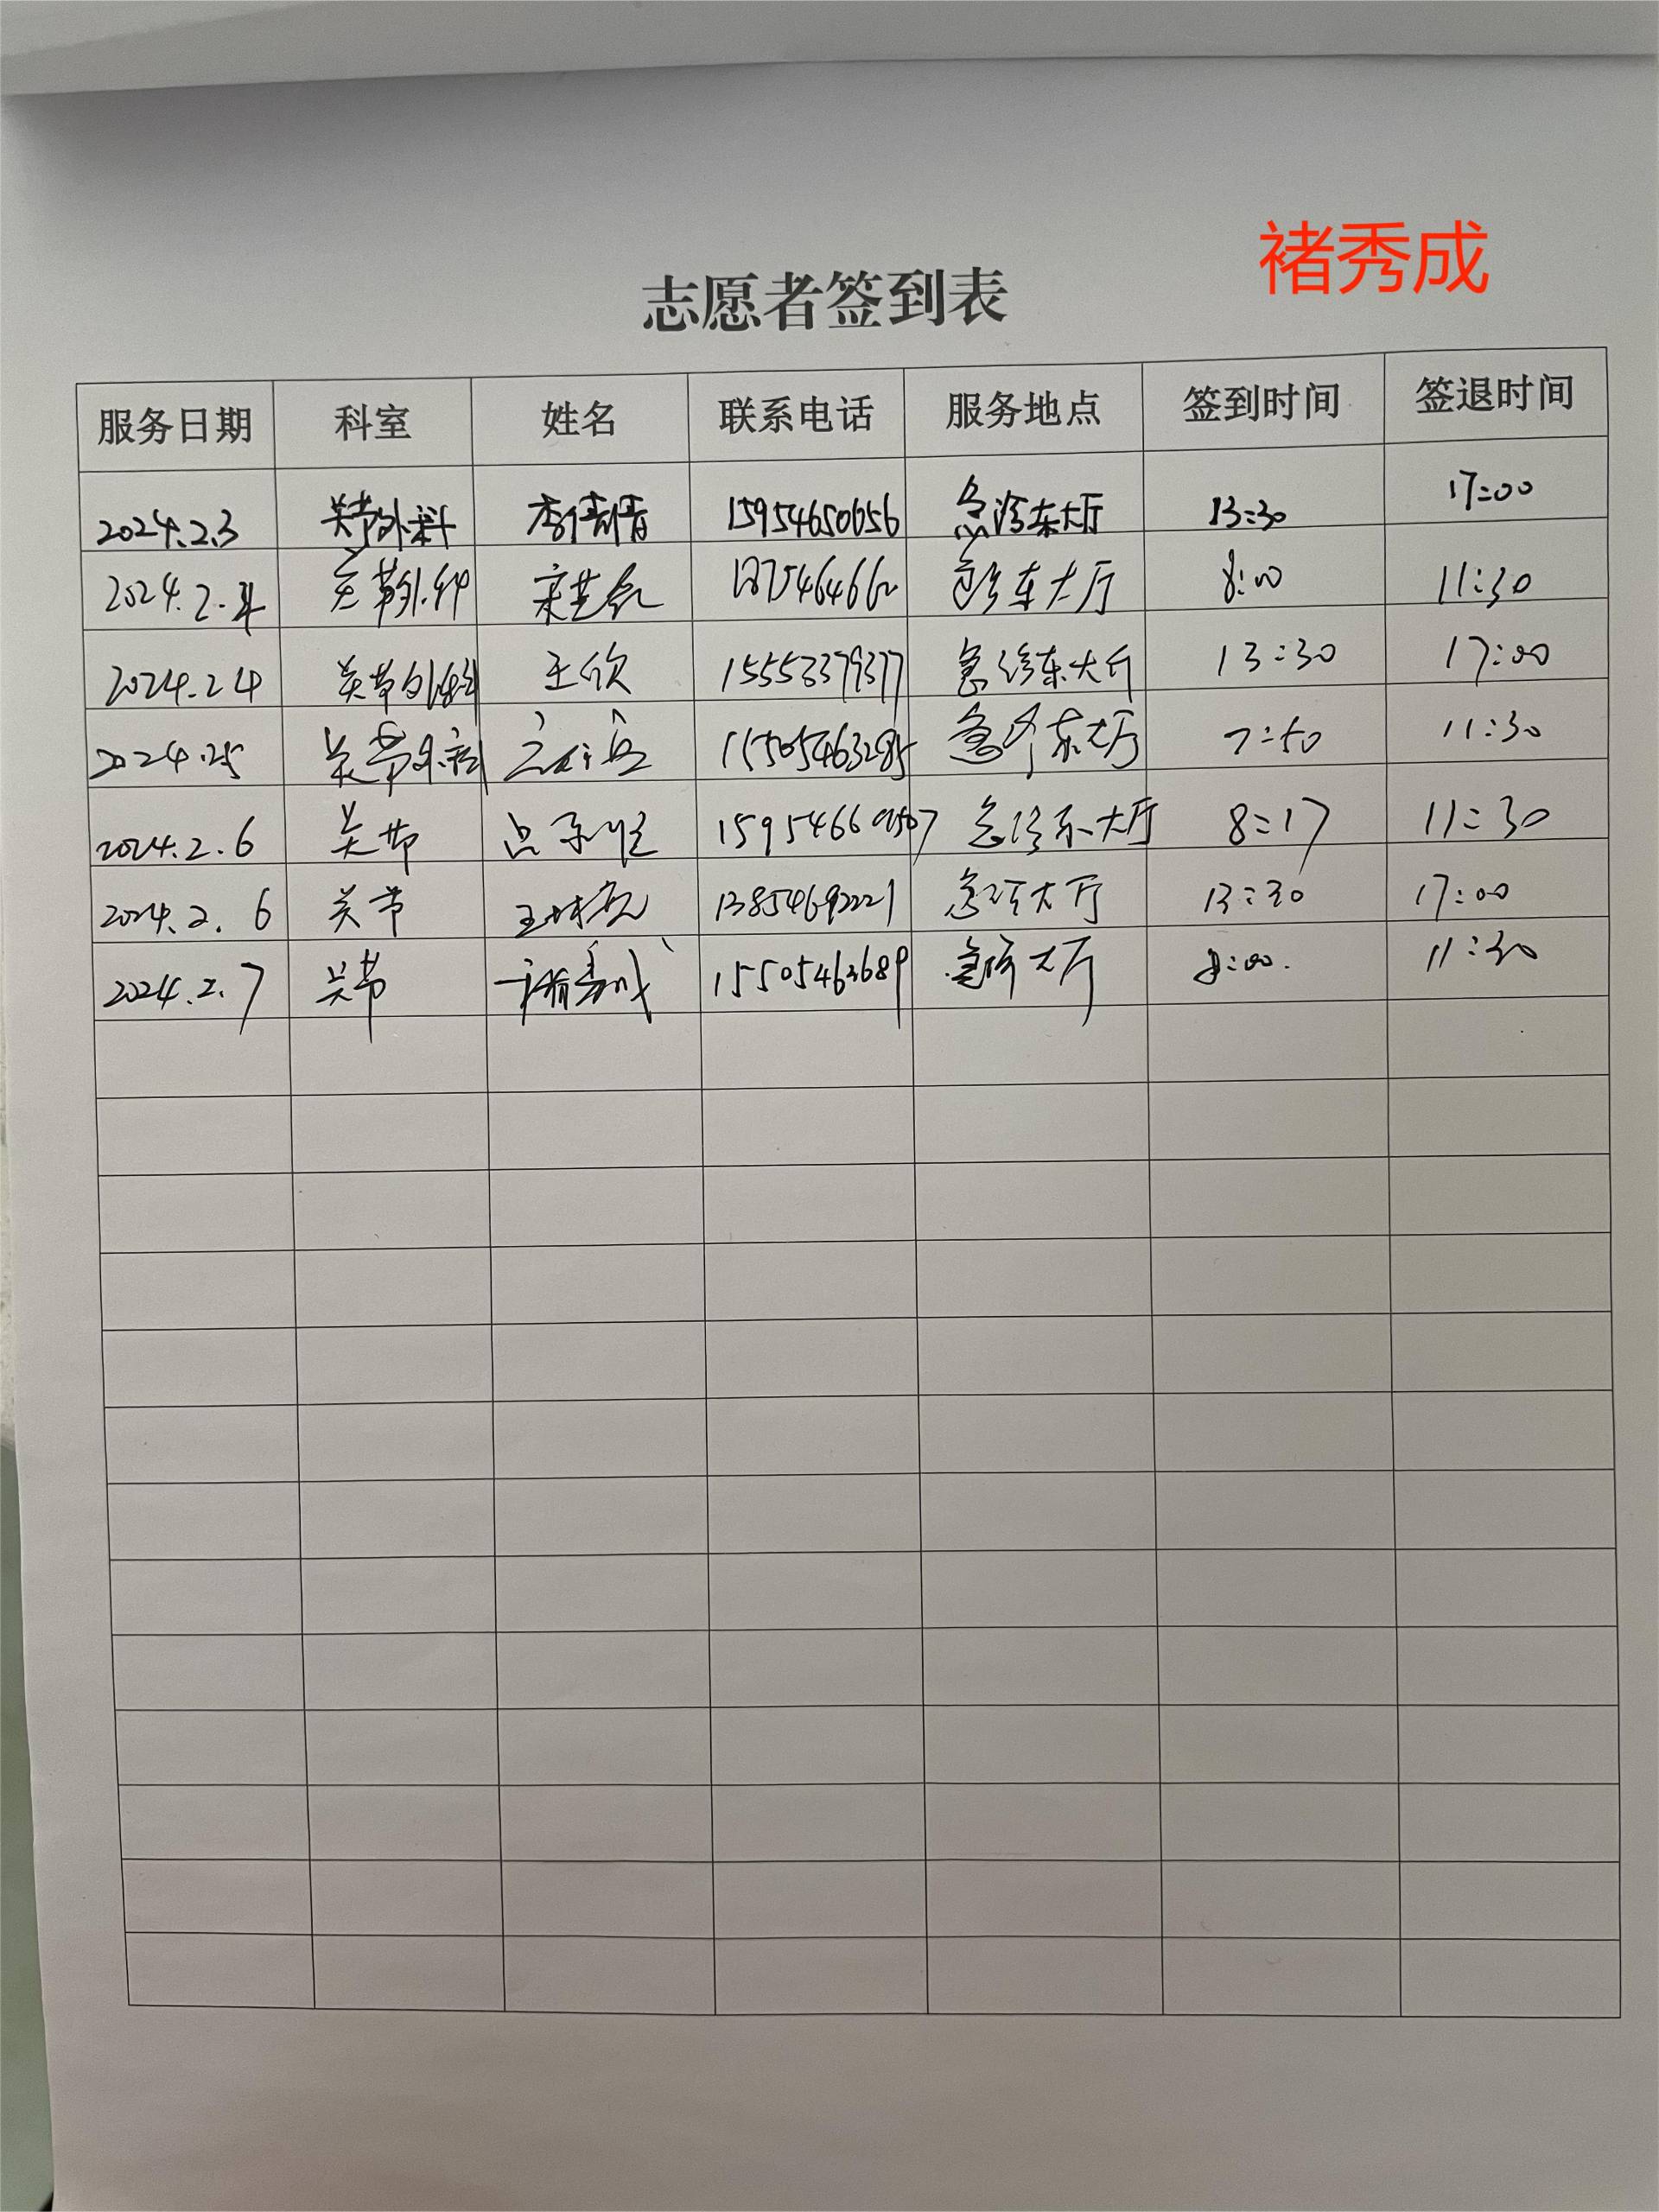 褚秀成
志愿者签到表
服务日期 科室 姓名 联系电话 服务地点 签到时间 签退时间
2024.2.3 关节外科 李倩倩 15954650656 急诊东大厅 13:30 17:00
2024.2.4 关节外科 急诊东大厅 8:00 11:30
2024.2.4 关节外科 王欣 15553379377 急诊东大厅 13:30 17:00
2024.2.5 关节外科 15505463285 急诊东大厅 7:50 11:30
2024.2.6 关节 急诊东大厅 8:17 11:30
2024.2.6 关节 13854692221 急诊大厅 13:30 17:00
2024.2.7 关节 褚秀成 15505463689 急诊大厅 8:00. 11:30